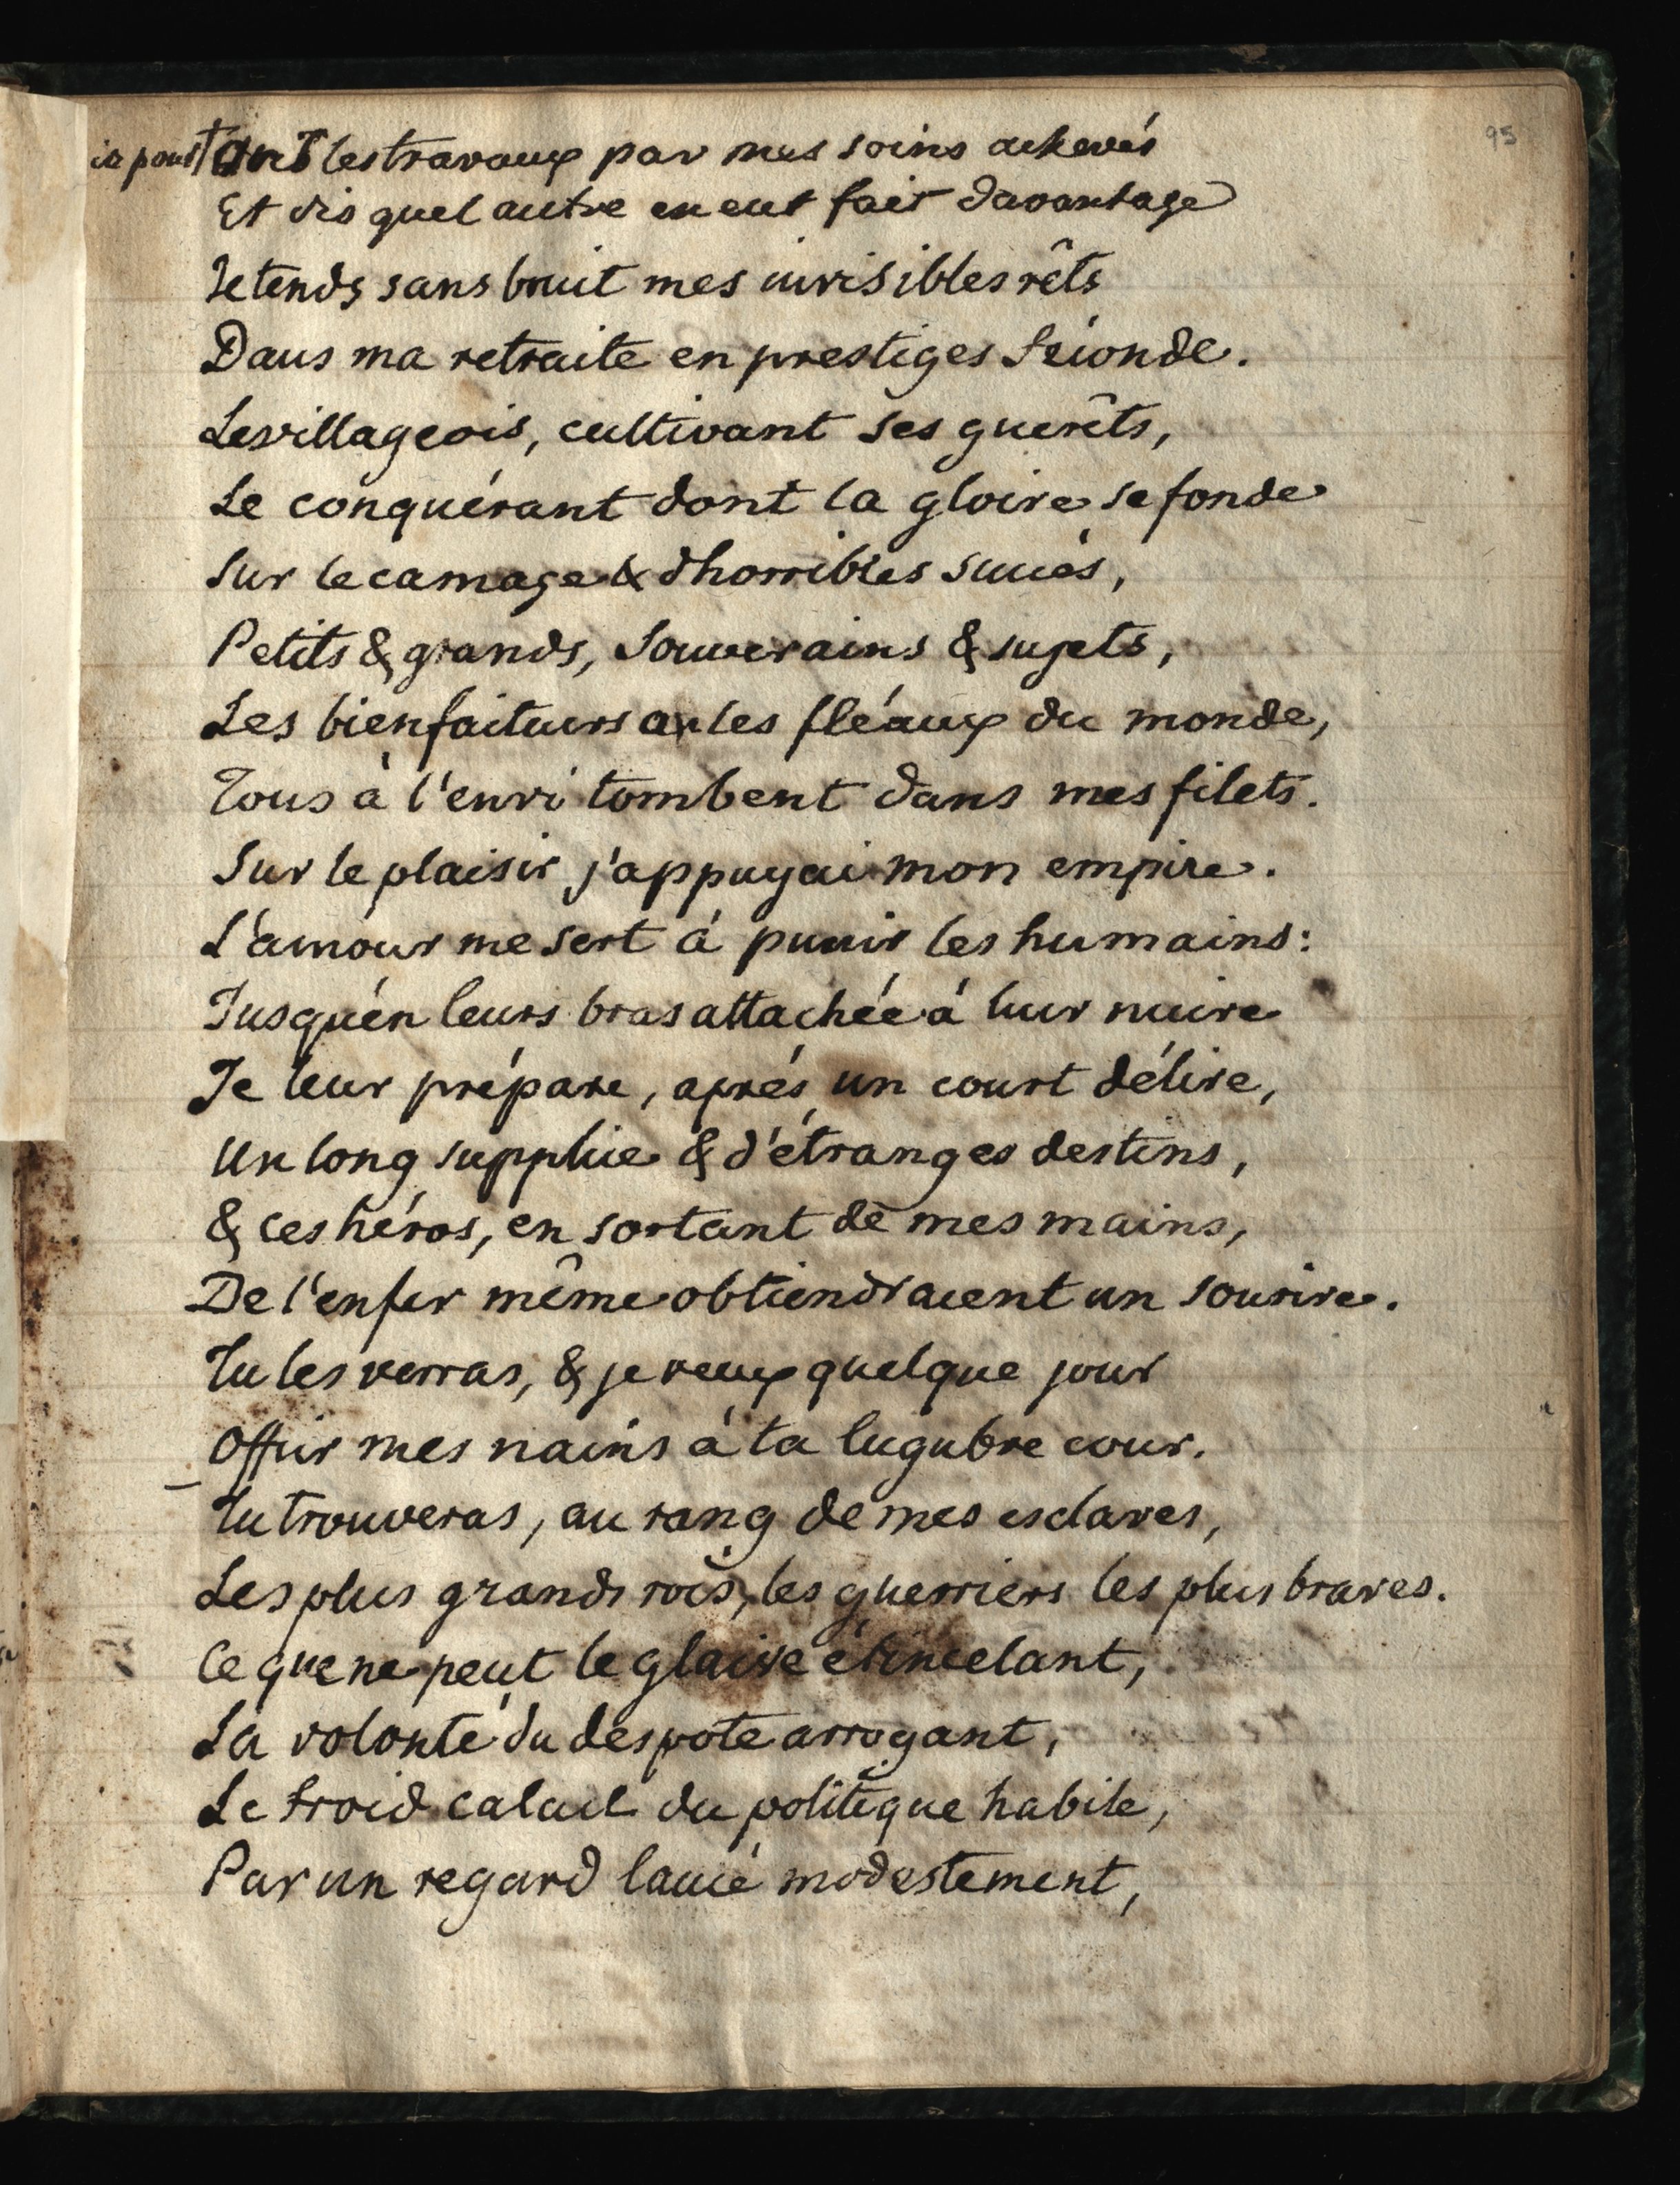 95
tant les travaux par mes soins achevés
Et dis quel autre en eut fait davantage
Je tends sans bruit mes invisibles rêts
Dans ma retraite en prestiges féconde.
Le villageois, cultivant ses guerêts,
Le conquérant dont la gloire se fonde
Sur le carnage & d'horribles succès,
Petits & grands, Souverains & sujets,
Les bienfaiteurs les fléaux du monde,
Tous à l'envi tombent dans mes filets.
Sur le plaisir j'appuyai mon empire.
L'amour me sert à punir les humains:
Jusqu'en leurs bras attachée à leur nuire
Je leur prépare, après un court délire,
Un long supplice & d'étranges destins,
& ces héros, en sortant de mes mains,
De l'enfer même obtiendraient un sourire.
Tu les verras, & je veux quelque jour
Offrir mes nains à ta lugubre cour.
Tu trouveras, au rang de mes esclaves,
Les plus grands rois, les guerriers les plus braves.
Ce que ne peut le glaive étincelant,
La volonté du despote arrogant,
Le froid calcul du politique habile,
Par un regard lancé modestement,